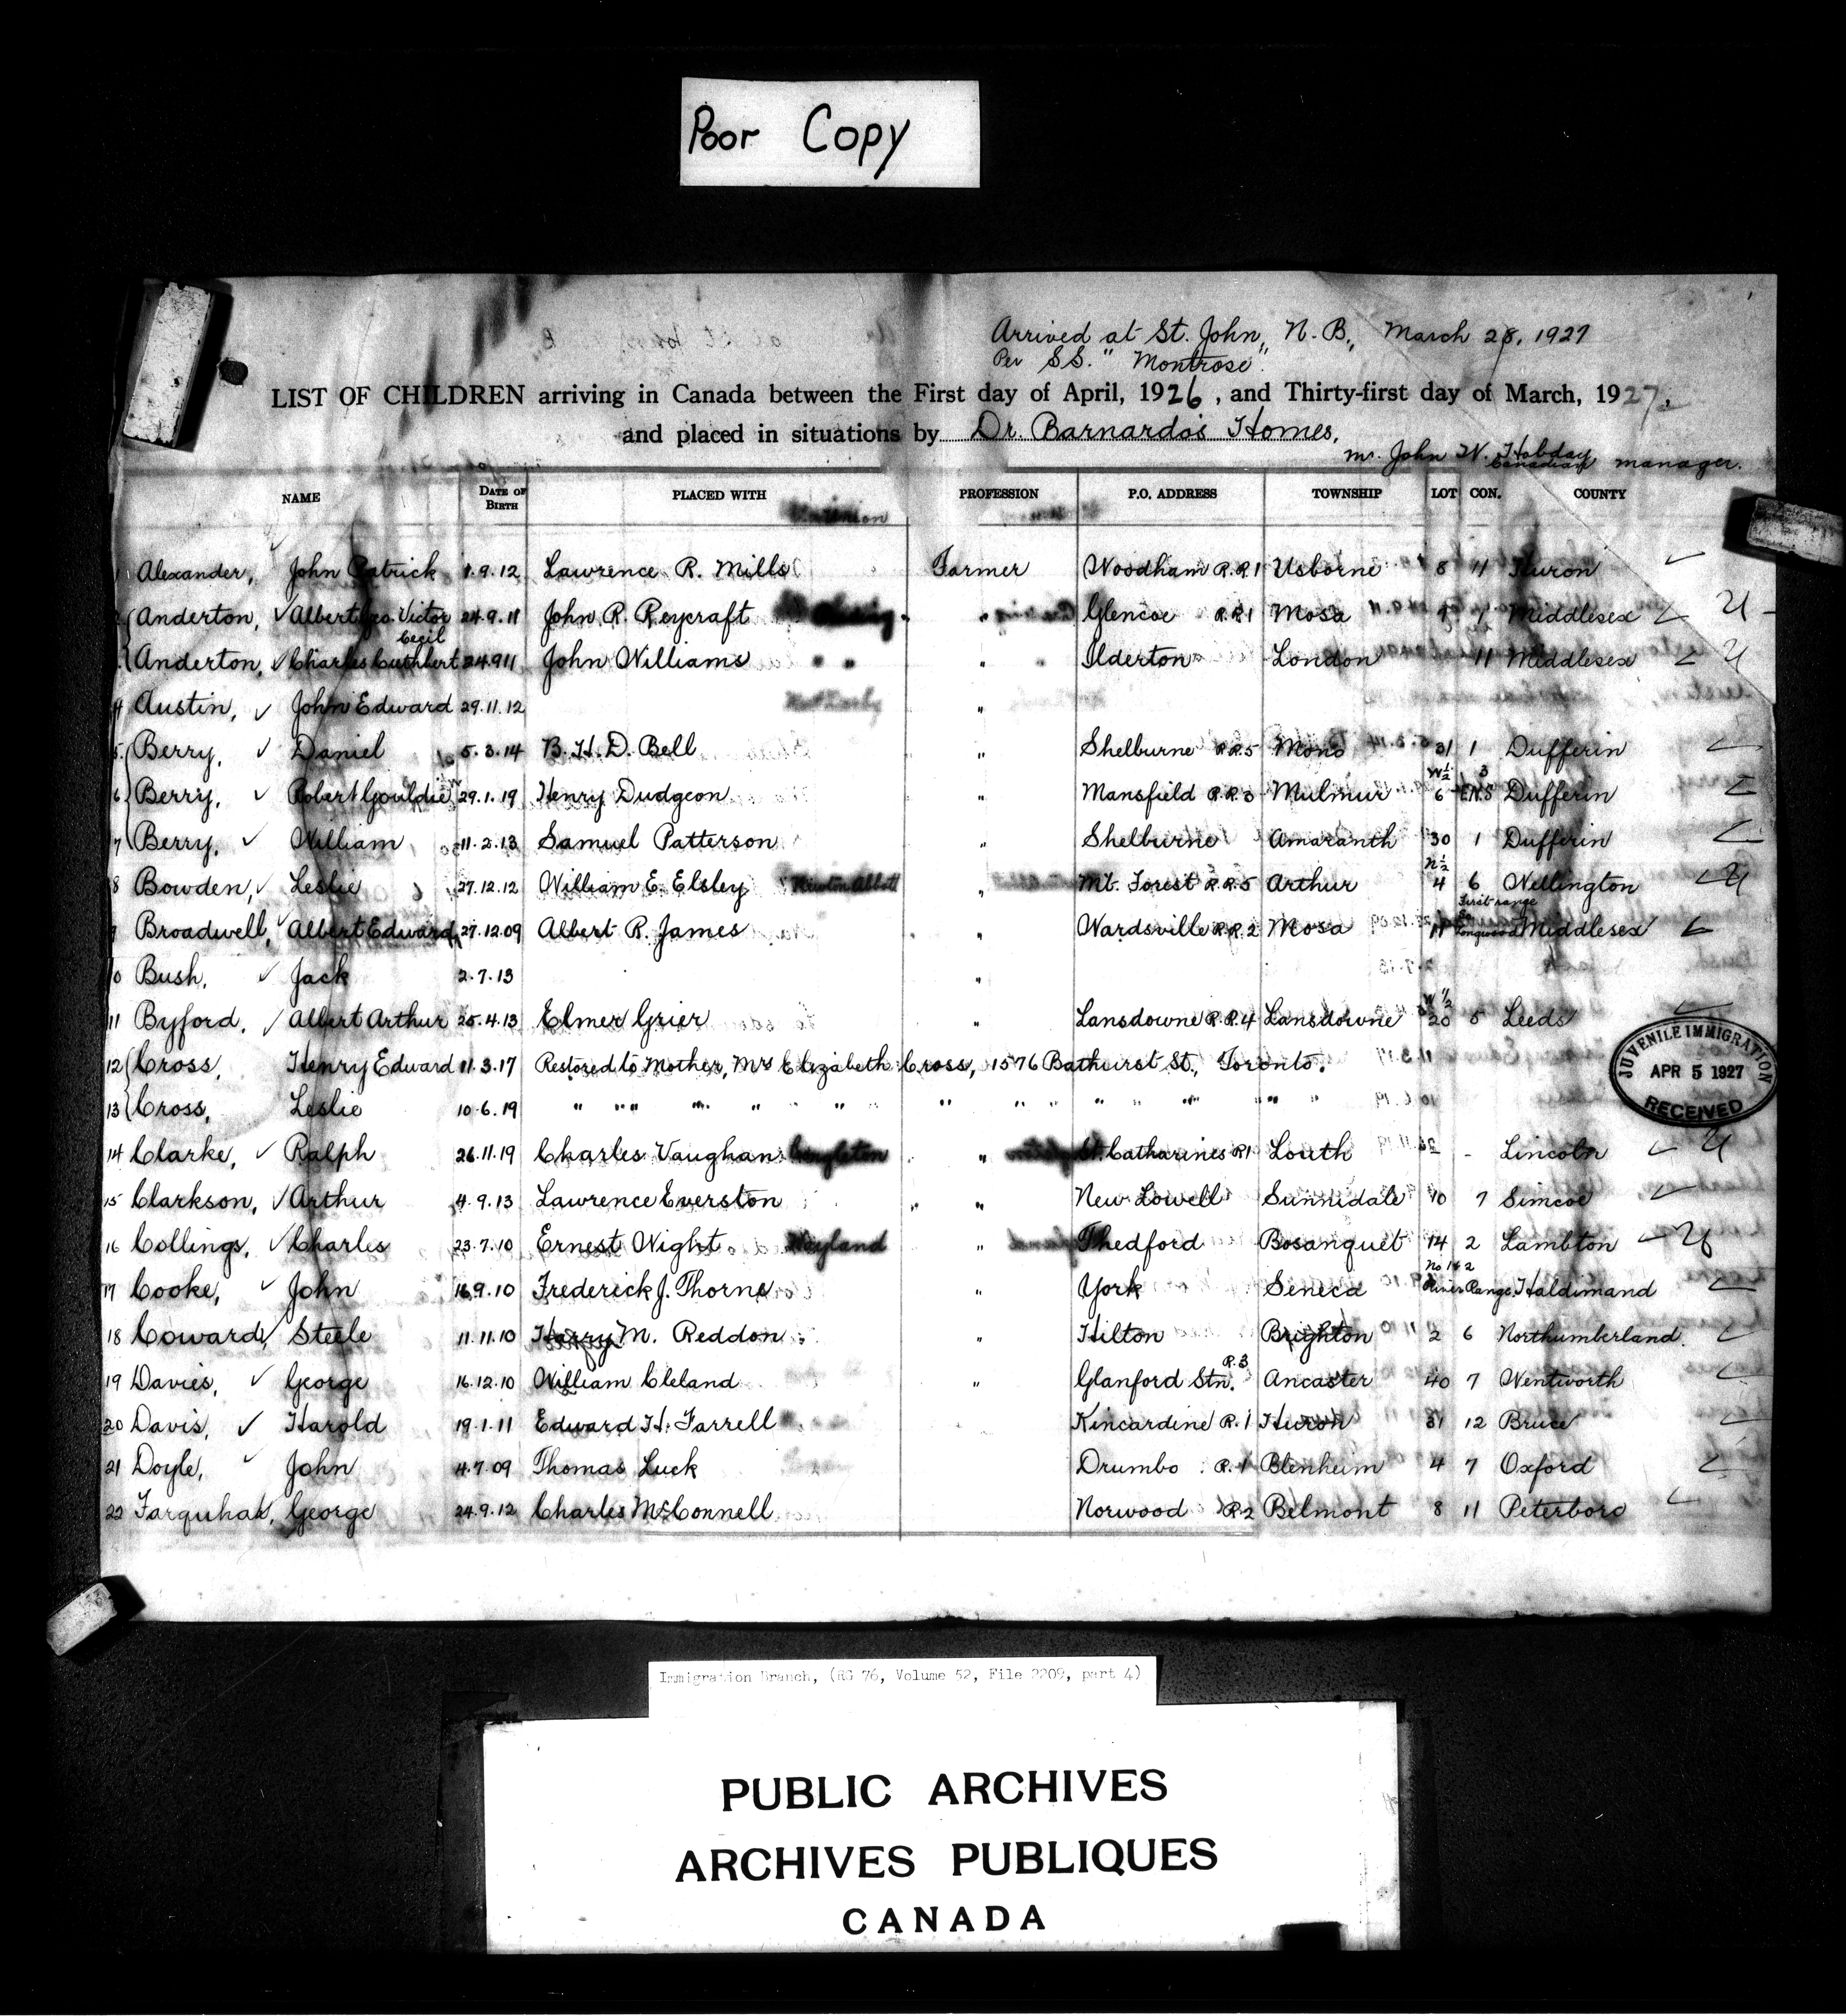 Poor Copy
Arrived at St. John, N. B., March 28, 1927
Per S.S. "Montrose".
LIST OF CHILDREN arriving in Canada between the First day of April, 1926, and Thirty-first day of March, 1927,
and placed in situations by Dr. Barnardo's Homes,
Mr. John W. Hobday, Canadian manager.
NAME DATE OF BIRTH PLACED WITH PROFESSION P.O. ADDRESS TOWNSHIP LOT CON. COUNTY
1 Alexander, John Patrick 1.9.12 Lawrence R. Mills Farmer Woodham R.R.1 Usborne 8 11 Huron
2 Anderton, Albert Geo. Victor 24.9.11 John R. Reycraft " Glencoe R.R.1 Mosa 9 1 Middlesex U
Anderton, Charles Cuthbert Cecil 24.9.11 John Williams " Ilderton London 11 Middlesex U
4 Austin, John Edward 29.11.12 "
5 Berry, Daniel 5.3.14 B. H. D. Bell " Shelburne R.R.5 Mono 31 1 Dufferin
6 Berry, Robert Gouldie 29.1.19 Henry Dudgeon " Mansfield R.R.3 Mulmur W½ 6 3 E.H.S Dufferin
7 Berry, William 11.2.13 Samuel Patterson " Shelburne Amaranth 30 1 Dufferin
8 Bowden, Leslie 27.12.12 William E. Elsley Newton Abbott " Mt. Forest R.R.5 Arthur N½ 4 6 Wellington U
9 Broadwell, Albert Edward 27.12.09 Albert R. James " Wardsville R.R.2 Mosa 11 First range So. Longwood Middlesex
10 Bush, Jack 2.7.13 "
11 Byford, Albert Arthur 25.4.13 Elmer Grier " Lansdowne R.R.4 Lansdowne W ½ 20 5 Leeds
12 Cross, Henry Edward 11.3.17 Restored to Mother, Mrs Elizabeth Cross, 1576 Bathurst St., Toronto.
13 Cross, Leslie 10.6.19 " " " " " " " " " " " " "
JUVENILE IMMIGRATION
APR 5 1927
RECEIVED
14 Clarke, Ralph 26.11.19 Charles Vaughan " St. Catharines R1 Louth - Lincoln U
15 Clarkson, Arthur 4.9.13 Lawrence Everston " New Lowell Sunnidale 10 7 Simcoe
16 Collings, Charles 23.7.10 Ernest Wight Wayland " Thedford Bosanquet 14 2 Lambton U
17 Cooke, John 16.9.10 Frederick J. Thorne " York Seneca No 1 & 2 River Range Haldimand
18 Coward, Steele 11.11.10 Harry M. Reddon " Hilton Brighton 2 6 Northumberland
19 Davies, George 16.12.10 William Cleland " Glanford Stn. R.3 Ancaster 40 7 Wentworth
20 Davis, Harold 19.1.11 Edward H. Farrell Kincardine R.1 Huron 31 12 Bruce
21 Doyle, John 4.7.09 Thomas Luck Drumbo R.1 Blenheim 4 7 Oxford
22 Farquhar, George 24.9.12 Charles McConnell Norwood R2 Belmont 8 11 Peterboro
Immigration Branch, (RG 76, Volume 52, File 2209, part 4)
PUBLIC ARCHIVES
ARCHIVES PUBLIQUES
CANADA